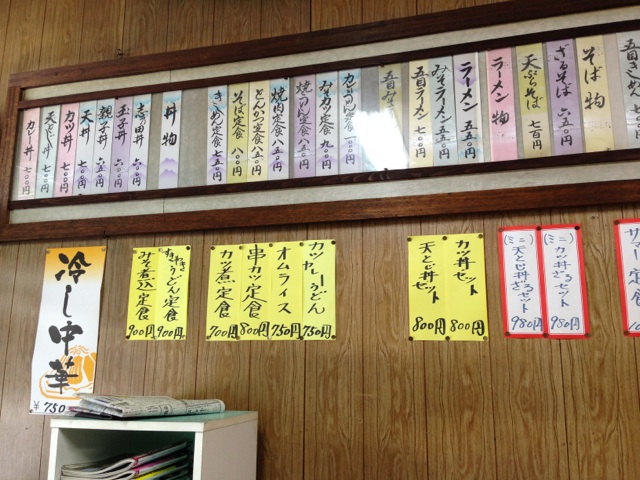 五目きしめん
そば物
ざるそば 六五〇円
天ぷらそば 七百円
ラーメン物
ラーメン 五五〇円
みそラーメン 五五〇円
五目ラーメン 七〇〇円
カレーうどん定食 八五〇円
みそカツ定食 九〇〇円
焼うどん定食 八五〇円
焼肉定食 八五〇円
とんかつ定食 八五〇円
そば定食 八〇〇円
きしめん定食 七五〇円
丼物
志の田丼 六〇〇円
玉子丼 六〇〇円
親子丼 六五〇円
天丼 七〇〇円
カツ丼 七〇〇円
天とじ丼 七〇〇円
カレー丼 七〇〇円
(ミニ)カツ丼ざるセット 980円
(ミニ)天とじ丼ざるセット 980円
カツ丼セット 800円
天とじ丼セット 800円
カツカレーうどん 750円
オムライス 750円
串カツ定食 800円
カツ煮定食 700円
すきやきうどん定食 900円
みそ煮込定食 900円
冷し中華 ¥750